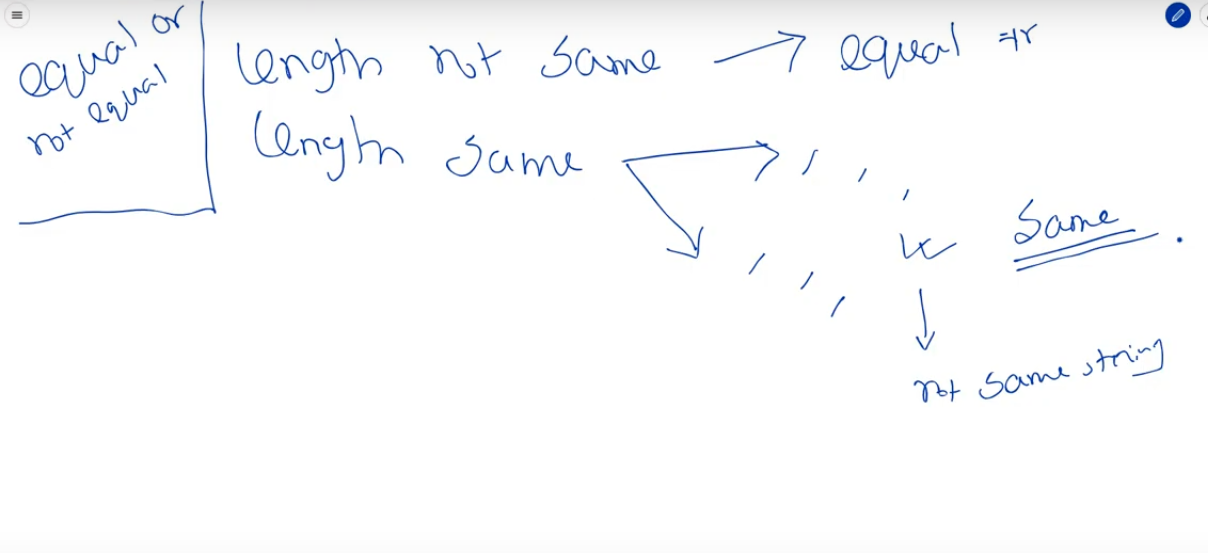 equal or
not equal
length not same → equal
length same
same
not same string